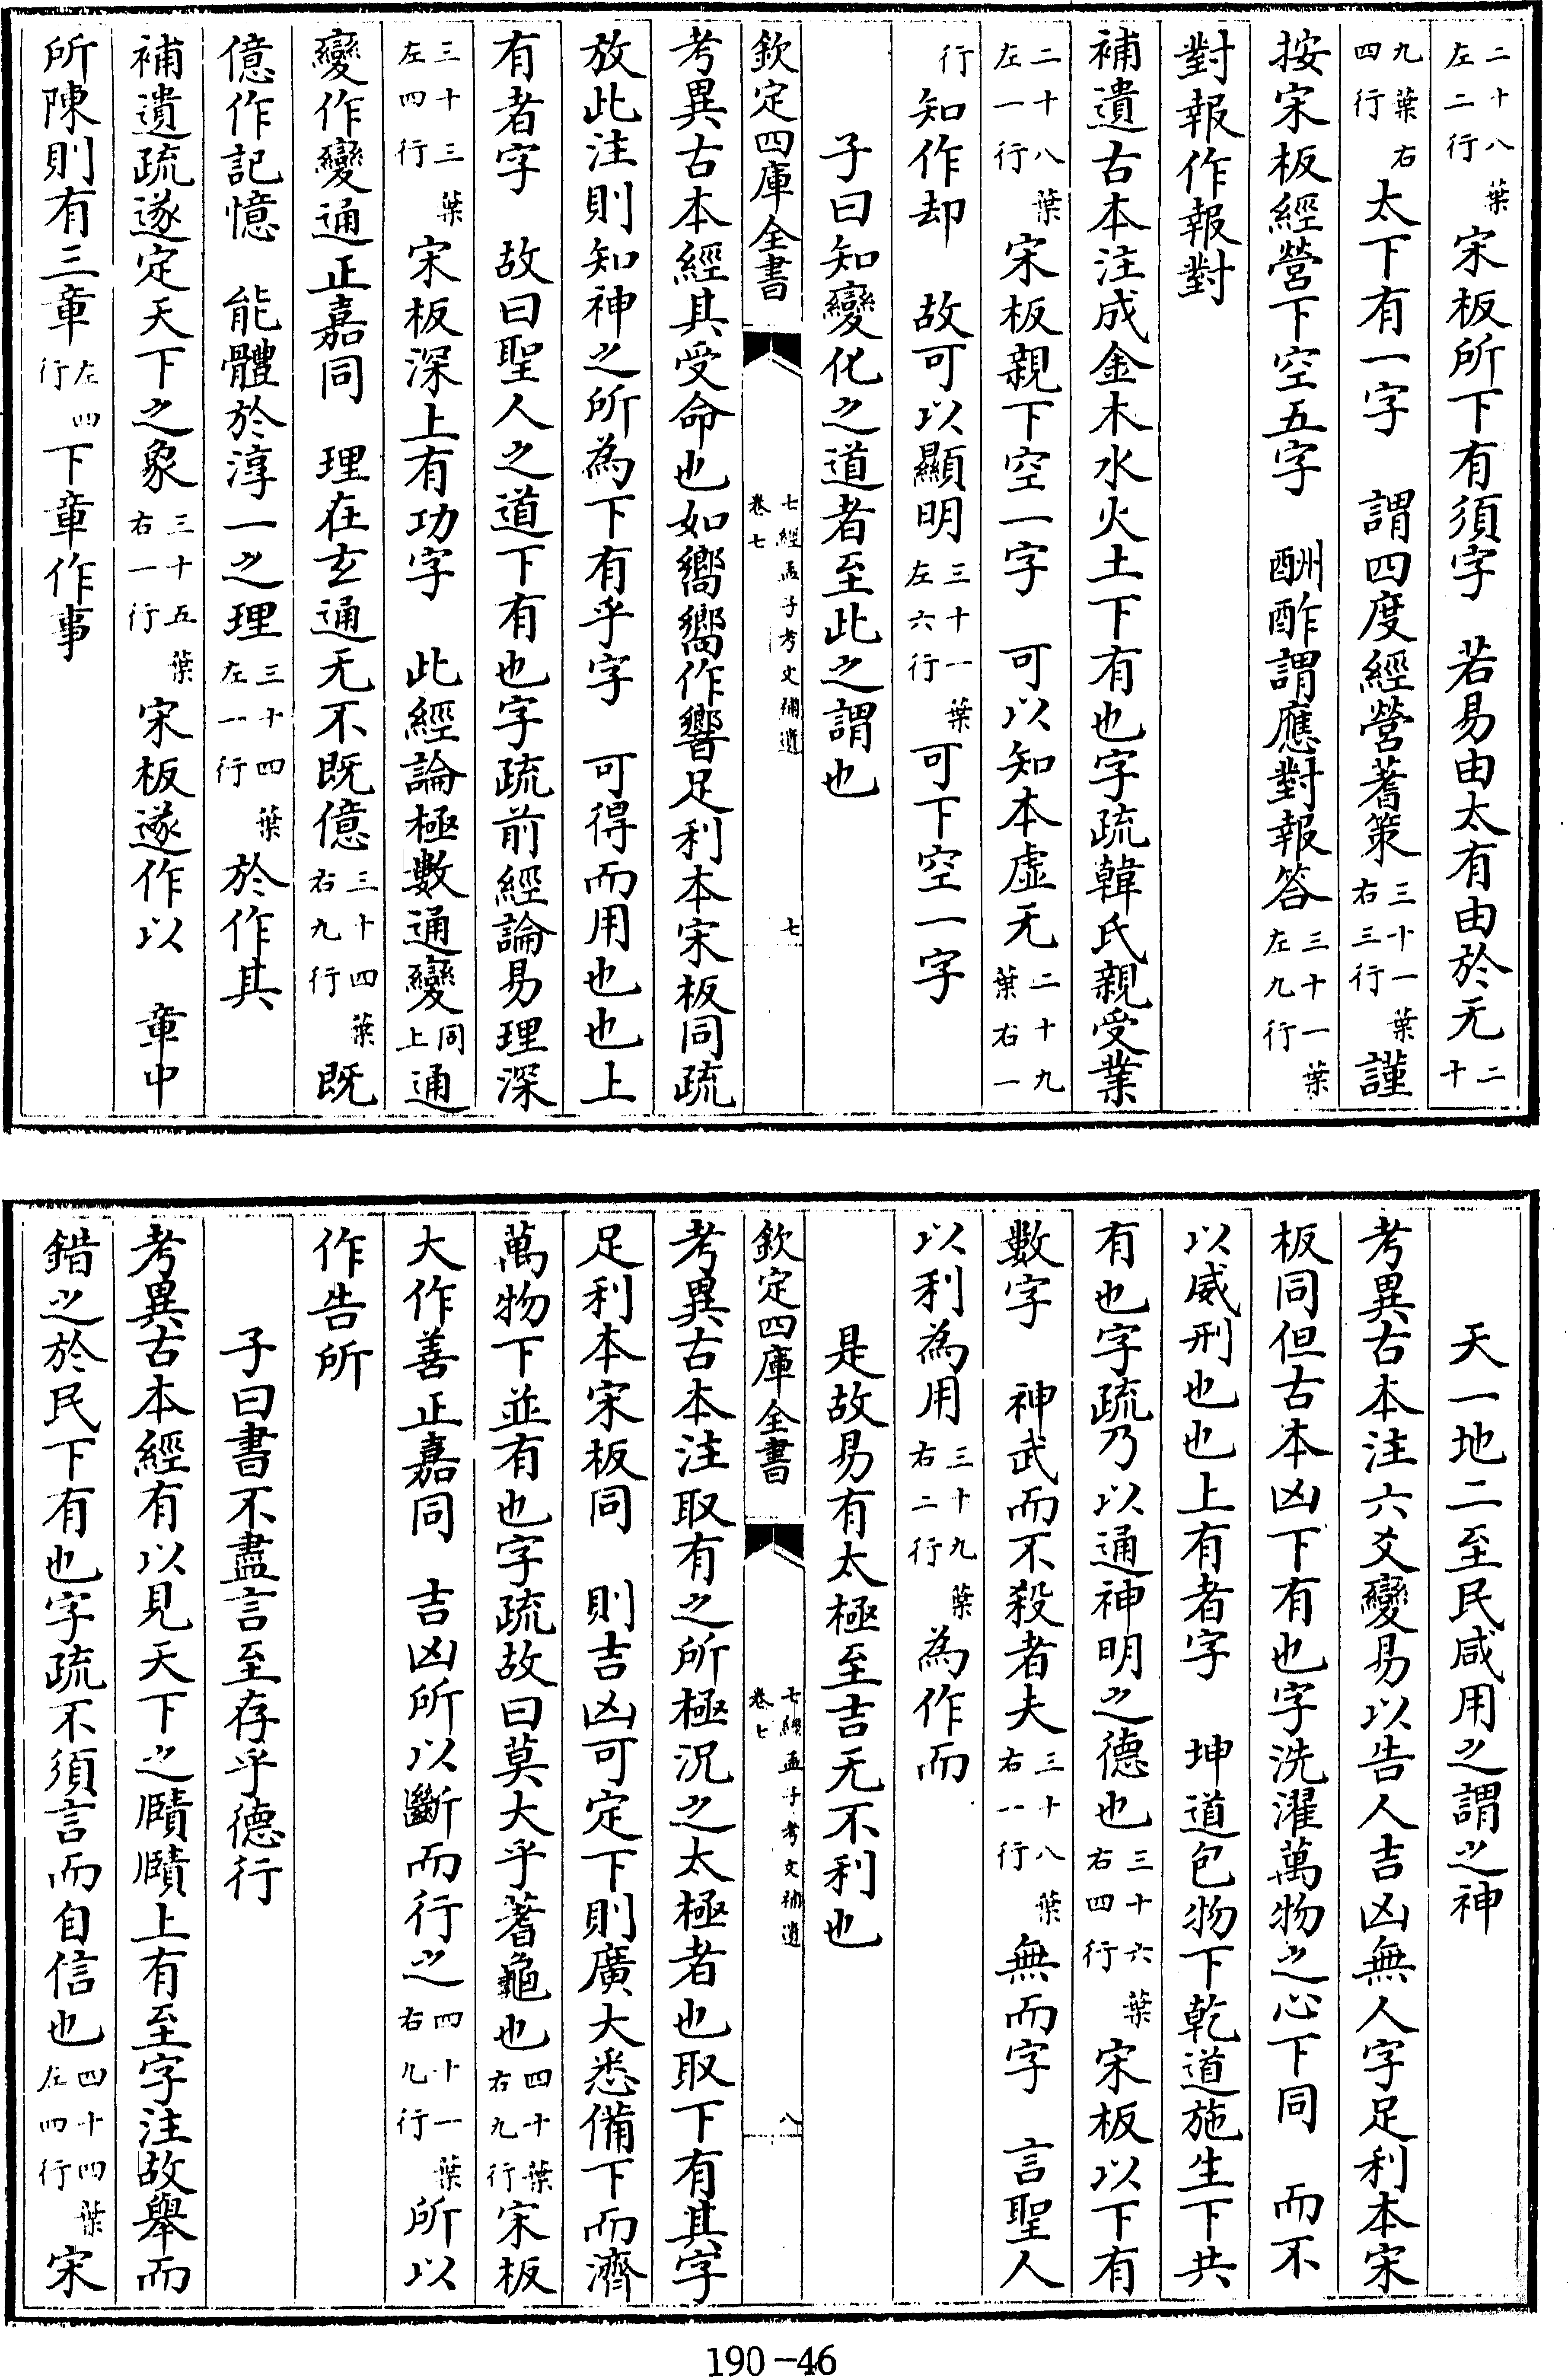 二十八葉左二行宋板所下有須字　若易由太有由於无二十
九葉右四行太下有一字　謂四度經營蓍策三十一葉右三行謹
按宋板經營下空五字　酬酢謂應對報答三十一葉左九行
對報作報對
補遺古本注成金木水火土下有也字疏韓氏親受業
二十八葉左一行宋板親下空一字　可以知本虛无二十九葉右一
行知作却　故可以顯明三十一葉左六行可下空一字
子曰知變化之道者至此之謂也
欽定四庫全書
七經孟子考文補遺
卷七
七
考異古本經其受命也如嚮嚮作響足利本宋板同疏
放此注則知神之所為下有乎字　可得而用也也上
有者字　故曰聖人之道下有也字疏前經論易理深
三十三葉左四行宋板深上有功字　此經論極數通變同上通
變作變通正嘉同　理在玄通无不既億三十四葉右九行既
億作記憶　能體於淳一之理三十四葉左一行於作其
補遺疏遂定天下之象三十五葉右一行宋板遂作以　章中
所陳則有三章左四行下章作事
天一地二至民咸用之謂之神
考異古本注六爻變易以告人吉凶無人字足利本宋
板同但古本凶下有也字洗濯萬物之心下同　而不
以威刑也也上有者字　坤道包物下乾道施生下共
有也字疏乃以通神明之德也三十六葉右四行宋板以下有
數字　神武而不殺者夫三十八葉右一行無而字　言聖人
以利為用三十九葉右二行為作而
是故易有太極至吉无不利也
欽定四庫全書
七經孟子考文補遺
卷七
八
考異古本注取有之所極況之太極者也取下有其字
足利本宋板同　則吉凶可定下則廣大悉備下而濟
萬物下並有也字疏故曰莫大乎蓍龜也四十葉右九行宋板
大作善正嘉同　吉凶所以斷而行之四十一葉右九行所以
作告所
子曰書不盡言至存乎德行
考異古本經有以見天下之賾賾上有至字注故舉而
錯之於民下有也字疏不須言而自信也四十四葉左四行宋
190-46